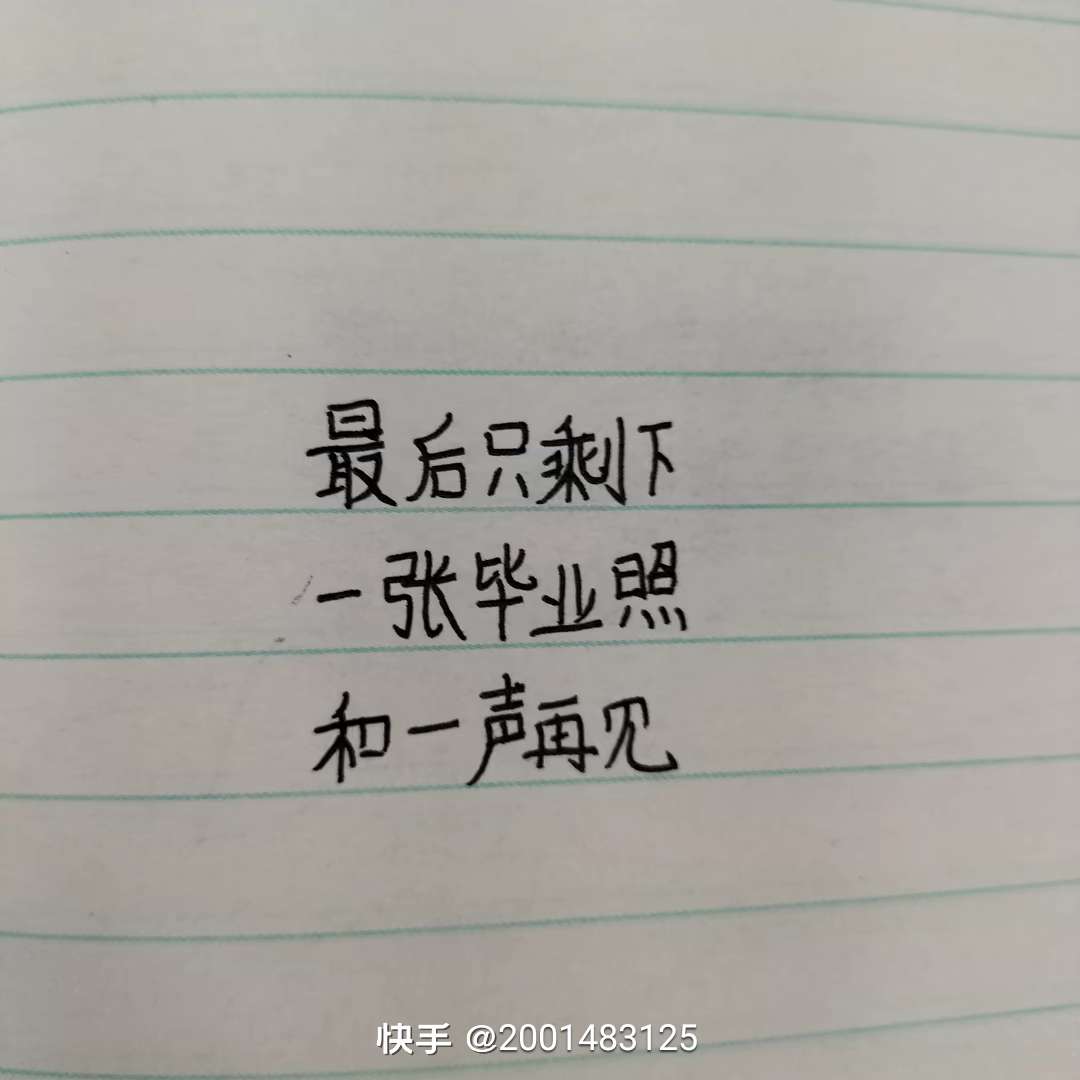 最后只剩下
一张毕业照
和一声再见
快手 @2001483125